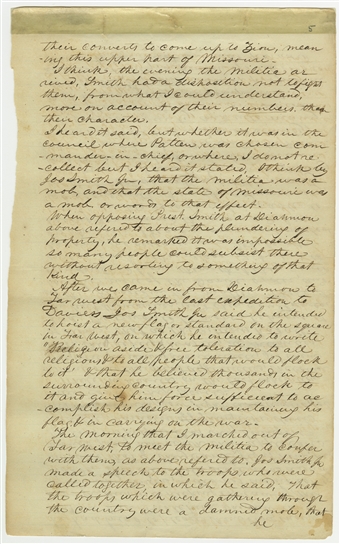 5
their converts to come up to Zion, mean
ing this upper part of Missouri.
I think, the evening the Militia ar
rived, Smith had a disposition not to fight
them, from what I could understand,
more on account of their numbers, than
their character.
I heard it said, but whether it was in the
council where Patten was chosen com
mander-in-chief, or where, I do not re
collect but I heard it stated, I think by
Jos Smith jr, that the militia was a
mob, and that the state of Missouri was
a mob or words to that effect.
When opposing Prest. Smith at Diahmon
above referred to about the plundering of
property, he remarked it was impossible
so many people could subsist there
without resorting to something of that
kind.
After we came in from Diahmon to
Far west from the last expedition to
Daviess Jos Smith Jr said he intended
to hoist a new flag or standard on the square
in Far west, on which he intended to write
in aside & free toleration to all
religions & to all people that would flock
to it" & that he believed thousands in the
surrounding country would flock to
it and give him force sufficient to ac
complish his designs in maintaining his
flag & in carrying on the war.
The morning that I marched out of
Far West, to meet the Militia to confer
with them, as above referred to, Jos Smith Jr
made a speech to the troops who were
called together, in which he said, That
the troops which were gathering through
the country were a damned mob, that
he